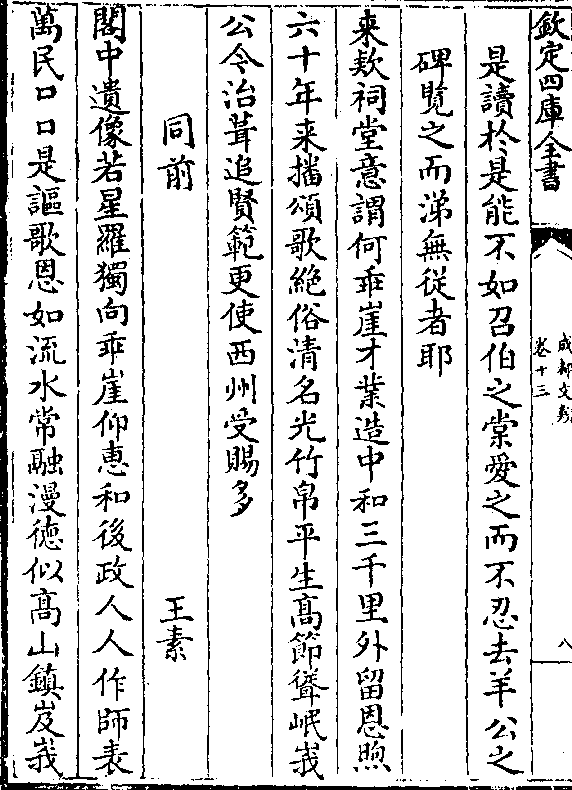 欽定四庫全書
成都文類
卷十三
八
是讀於是能不如召伯之棠愛之而不忍去羊公之
碑覽之而涕無從者耶
来欵祠堂意謂何乖崖才業造中和三千里外留恩煦
六十年来播頌歌絶俗清名光竹帛平生髙節聳岷峩
公令治葺追賢範更使西州受賜多
同前　王素
閣中遺像若星羅獨向乖崖仰惠和後政人人作師表
萬民口口是謳歌恩如流水常融漫徳似髙山鎮岌峩